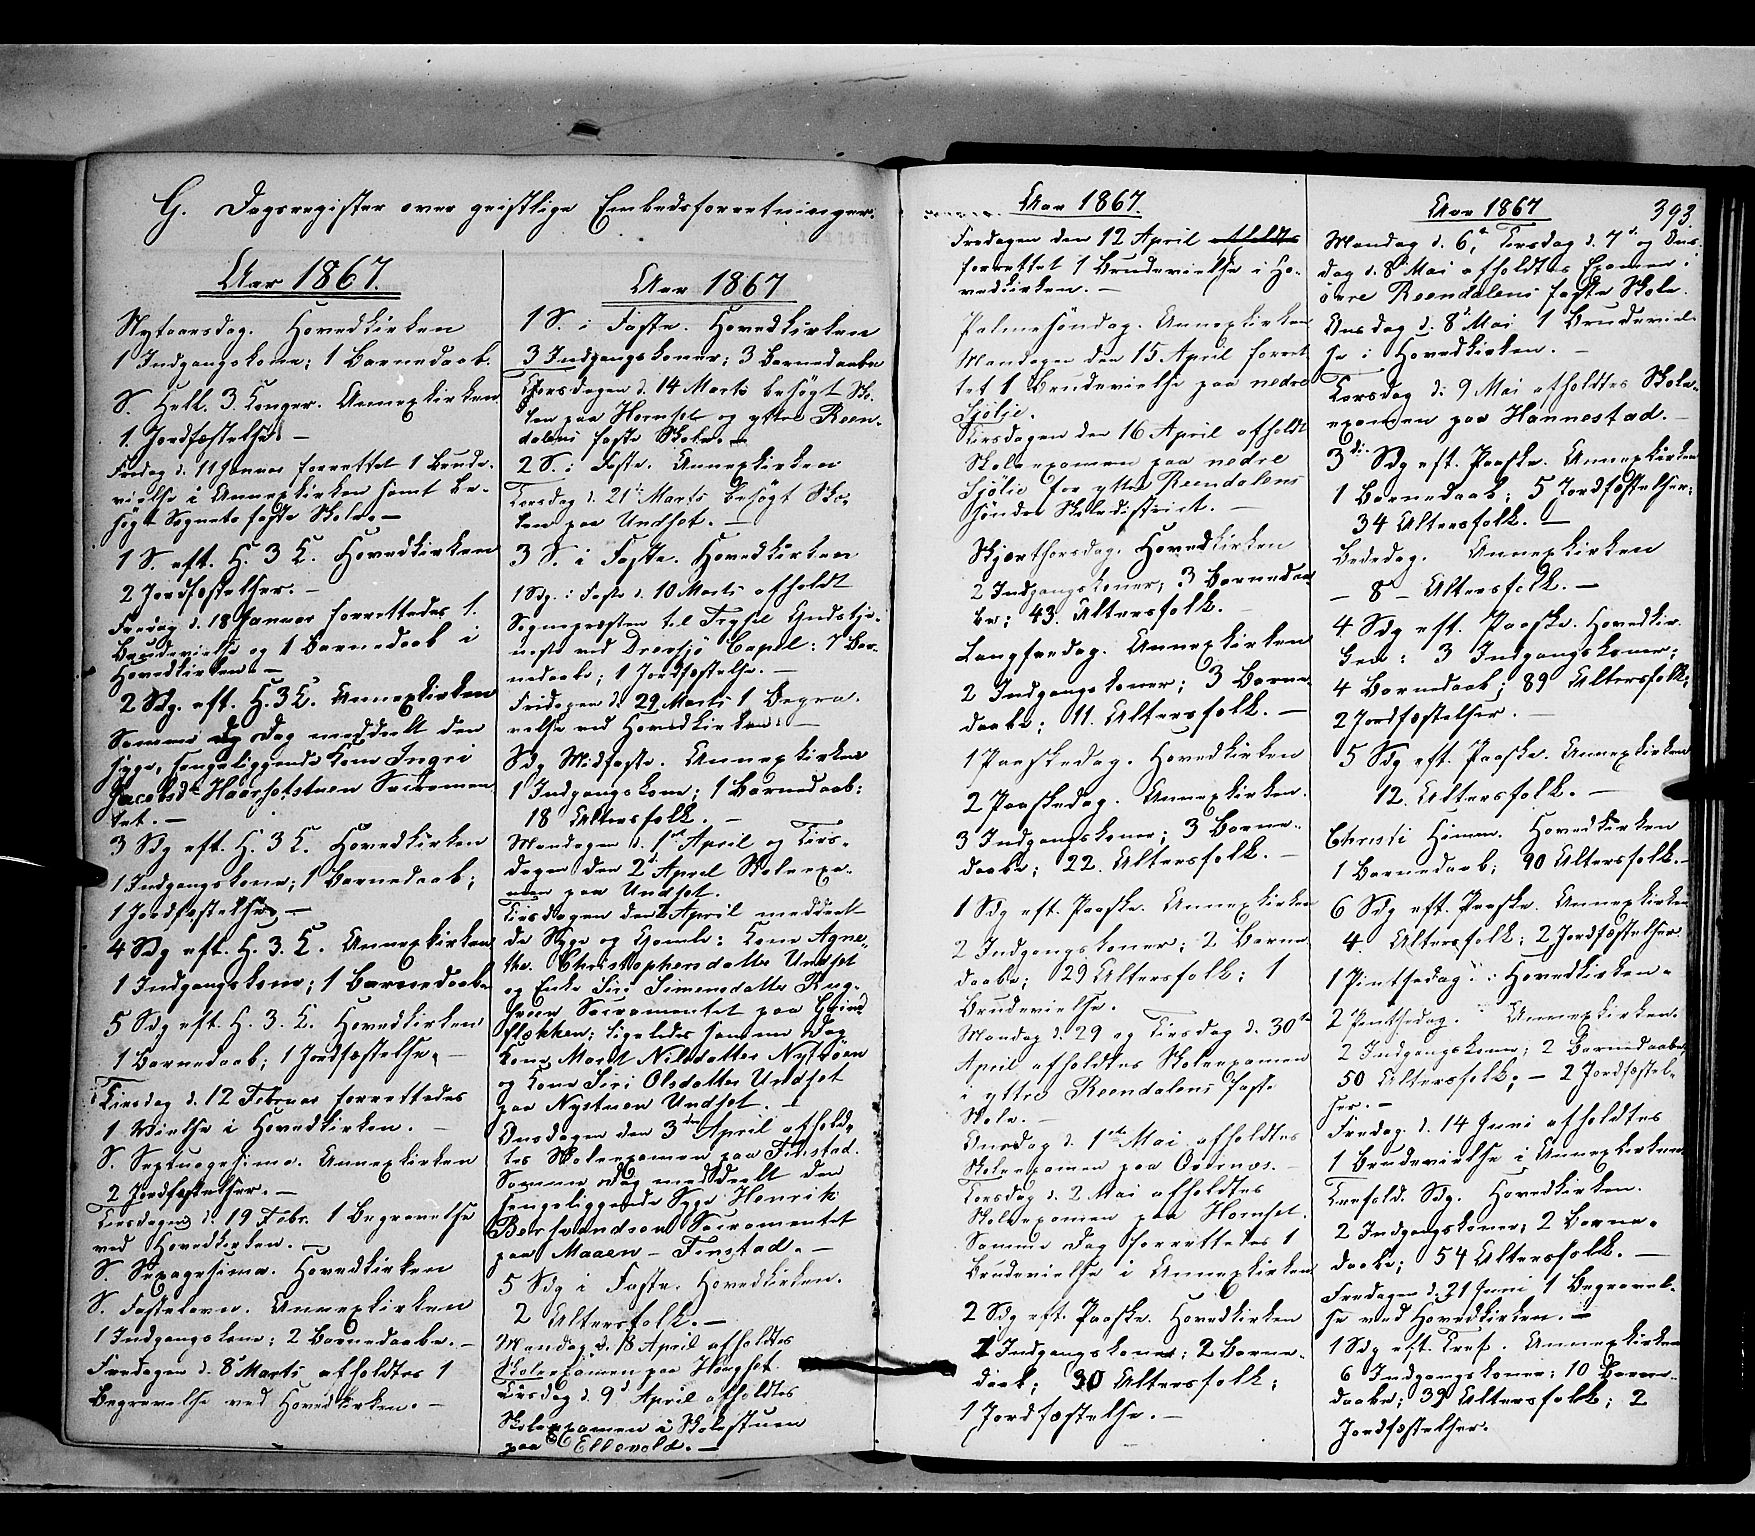 G. Dagsregister over geistlige Embedsforretninger.
Aar 1867.
Nytaarsdag. Hovedkirken
1 Indgangskone; 1 Barnedaab.
S. Hell. 3. Konger. Annexkirken
1. Jordfæstelse. —
Fredag d. 11 Januar forrettet 1 Brude-
vielse i Annexkirken samt be-
søgt Sognets faste Skole. —
1 S. eft. H. 3 K. Hovedkirken
2 Jordfæstelser. —
Fredag d. 18 Januar forrettedes 1.
Brudevielse og 1 Barnedaab i
Hovedkirken. —
2 Sdg. eft. H. 3 K. Annexkirken
Samme Dag meddeelt den
syge, sengeliggende Kone Ingri
Jacobsdr Haarsetstuen Sacramen
tet. —
3 Sdg eft. H. 3 K. Hovedkirken
1 Indgangskone; 1 Barnedaab;
1 Jordfæstelse. —
4 Sdg eft. H. 3. K. Annexkirken
1 Indgangskone; 1 Barnedaab
5 Sdg eft. H. 3. K. Hovedkirken
1 Barnedaab; 1 Jordfæstelse. —
Tirsdag d. 12 Februar forrettedes
1 Vielse i Hovedkirken. —
S. Septuagesima. Annexkirken
2 Jordfæstelser. —
Tirsdagen d. 19 Febr. 1 Begravelse
ved Hovedkirken. —
S. Sexagesima. Hovedkirken
S. Fastelavn. Annexkirken
1 Indgangskone; 2 Barnedaabe. —
Fredagen d. 8 Marts afholdtes 1
Begravelse ved Hovedkirken. —
Aar 1867
1 S. i Faste. Hovedkirken
3 Indgangskoner; 3 Barnedaabe
Thorsdagen d. 14 Marts besøgt Sko-
len paa Hornset og yttre Reen-
dalens faste Skole. —
2 S. i Faste. Annexkirken
Torsdag d. 21 Marts besøgt Sko-
len paa Undset. —
3 S. i Faste. Hovedkirken
1 Sdg. i Faste d. 10 Marts afholdt
Sognepræsten til Trysil Gudstje-
neste ved Drevsjø Capel: 7 Bar-
nedaabe; 1 Jordfæstelse. —
Fridagen d. 29 Marts 1 Begra-
velse ved Hovedkirken. —
Sdg Midfaste. Annexkirken
1 Indgangskone; 1 Barnedaab;
18 Altersfolk. —
Mandagen d. 1 April og Tirs-
dagen den 2 April Skoleexa-
men paa Undset.
Tirsdagen den 2 April meddeel-
de Syge og Gamle: Kone Agne-
the Christophersdatter Undset
og Enke Siri Simensdatter Rug-
sveen Sacramentet paa
fløkken; ligeledes samme Dag
Kone Marit Nilsdatter Nystuen
og Kone Siri Olsdatter Undset
paa Nystuen Undset. —
Onsdagen den 3 April afhold-
tes Skoleexamen paa Finstad.
Samme Dag meddeelt den
sengeliggende Syge Henrik
Berhvendsen Sacramentet
paa Maaen – Finstad. —
5 Sdg i Faste. Hovedkirken.
2 Altersfolk. —
Mandag d. 8 April afholdtes
Skoleexamen paa Haugset
Tirsdag d. 9 April afholdtes
Skoleexamen i Skolestuen
paa Ellevold. —
Aar 1867.
Fredagen den 12 April afholdtes
forrettet 1 Brudevielse i Ho-
vedkirken. —
Palmesöndag. Annexkirken
Mandagen den 15 April forret
tet 1 Brudevielse paa nedre
Sjølie.
Tirsdagen den 16 April afholdt
Skoleexamen paa nedre
Sjølie for yttre Reendalens
söndre Skoledistrict. —
Skjærthorsdag. Hovedkirken
2 Indgangskoner; 3 Barnedaa
be; 43. Altersfolk. —
Langfredag. Annexkirken
2 Indgangskoner; 3 Barne-
daabe; 11. Altersfolk. —
1 Paaskedag. Hovedkirken
2 Paaskedag. Annexkirken.
3 Indgangskoner; 3 Barne-
daabe; 22. Altersfolk. —
1 Sdg eft. Paaske. Annexkirken
2 Indgangskoner; 2 Barne-
daabe; 29 Altersfolk; 1
Brudevielse.
Mandag d. 29 og Tirsdag d. 30te
April afholdtes Skoleexamen
i yttre Reendalens faste
Skole. —
Onsdag d. 1ste Mai afholdtes
Skoleexamen paa Østrnæs. —
Torsdag d. 2 Mai afholdtes
Skoleexamen paa Hornset.
Samme Dag forrettedes 1
Brudevielse i Annexkirken
2 Sdg eft. Paaske. Hovedkirken
1 Indgangskone; 2 Barne-
daab; 30 Altersfolk;
1 Jordfæstelse. —
Aar 1867
393.
Mandag d. 6, Tirsdag d. 7 og Ons-
dag d. 8 Mai afholdtes Examen i
øvre Reendalens faste Skole.
Onsdag d. 8 Mai 1 Brudeviel-
se i Hovedkirken. —
Torsdag d. 9 Mai afholdtes Skole-
examen paa Hannestad. —
3die Sdg eft. Paaske. Annexkirken
1 Barnedaab; 5 Jordfæstelser;
34 Altersfolk. —
Bededag. Annexkirken
— 8 — Altersfolk. —
4 Sdg eft. Paaske. Hovedkir-
ken: 3 Indgangskoner;
4 Barnedaab; 89 Altersfolk;
2 Jordfæstelser. —
5 Sdg eft. Paaske. Annexkirken
12. Altersfolk. —
Christi Himm. Hovedkirken
1 Barnedaab; 90 Altersfolk. —
6 Sdg eft. Paaske. Annexkirken
4. Altersfolk; 2 Jordfæstelser
1 Pintsedag: Hovedkirken.
2 Pintsedag. Annexkirken.
2 Indgangskoner; 2 Barnedaabe;
50 Altersfolk; — 2 Jordfæstel-
ser. —
Fredag d. 14 Juni afholdtes
1 Brudevielse i Annexkirken
Trefold. Sdg. Hovedkirken.
2 Indgangskoner; 2 Barne-
daabe; 54 Altersfolk. —
Fredagen d. 21 Juni 1 Begravel-
se ved Hovedkirken. —
1 Sdg eft. Tref. Annexkirken
6 Indgangskoner; 10 Barne-
daabe; 39 Altersfolk; 2
Jordfæstelser.